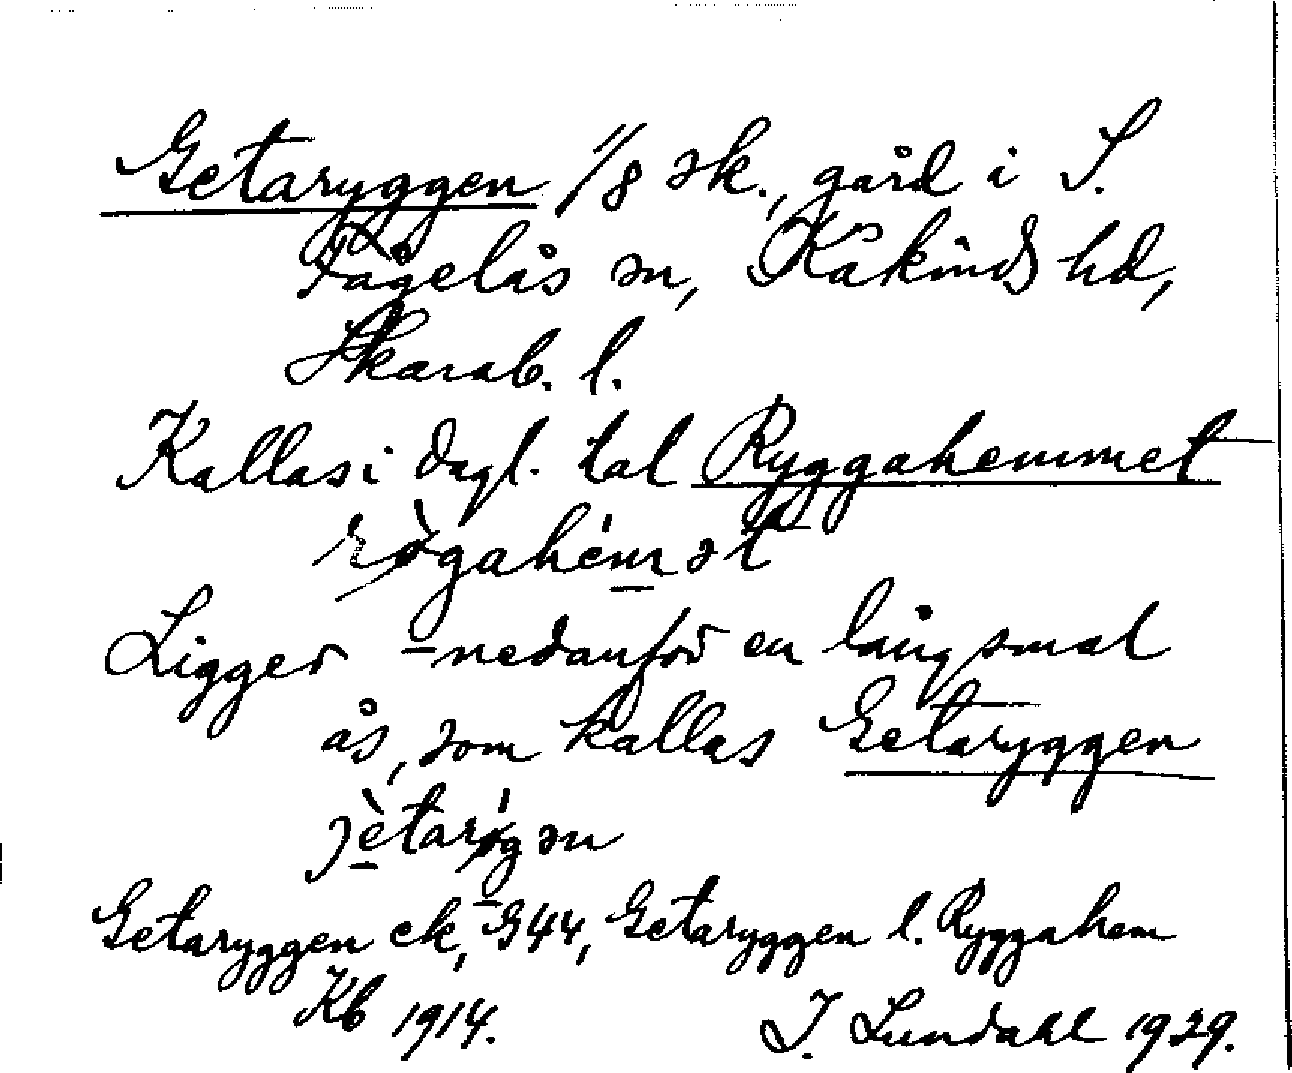 Getaryggen 1/8 sk., gård i S.
Fågelås sn, Kåkinds hd,
Skarab. l.
Kallas i dagl. tal Ryggahemmet
røgahem̲ət
Ligger nedanför en lång smal
ås, som kallas Getaryggen
jetarøgən
Getaryggen ek, G44, Getaryggen l. Ryggahem
Kb 1914. I. Lundahl 1929.